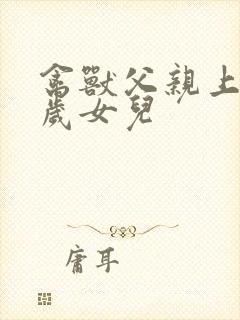 禽獸父親上
歲女兒
庸耳